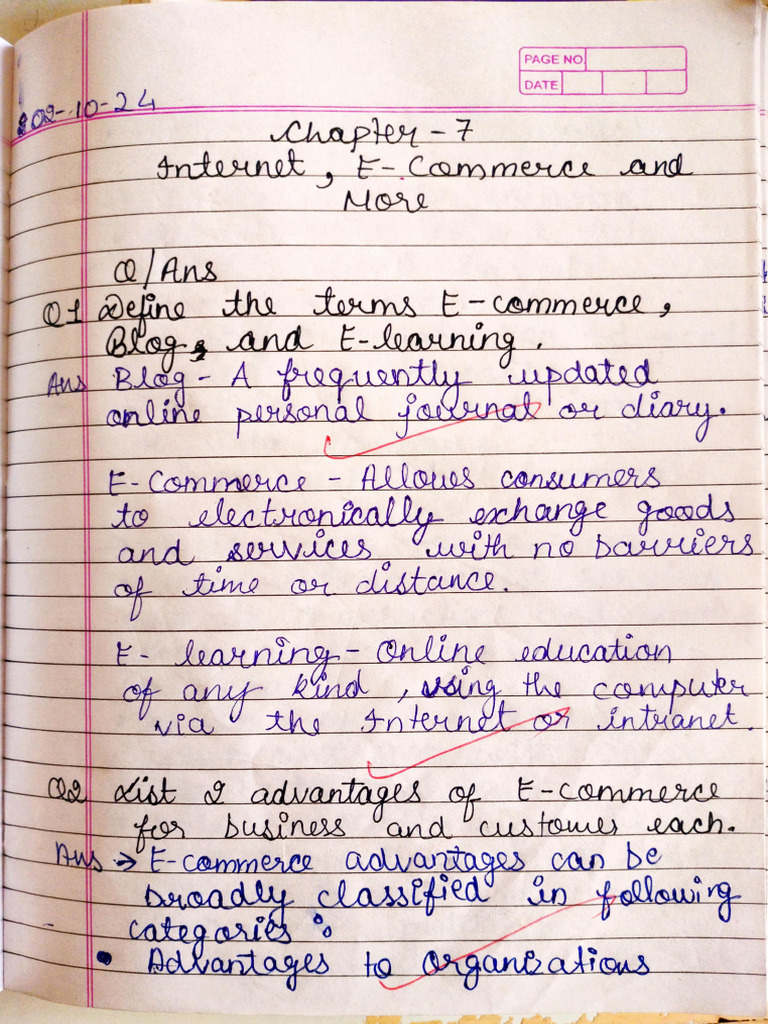 PAGE NO
DATE
02-10-24
Chapter - 7
Internet, E-Commerce and
More
Q/Ans
Q1 Define the terms E-commerce,
Blog, and E-learning.
Ans Blog - A frequently updated
online personal journal or diary.
E-Commerce - Allows consumers
to electronically exchange goods
and services with no barriers
of time or distance.
E- learning - Online education
of any kind, using the computer
via the Internet or intranet.
Q2 List 2 advantages of E-commerce
for business and customes each.
Ans → E-commerce advantages can be
broadly classified in following
categories :
• Advantages to organizations